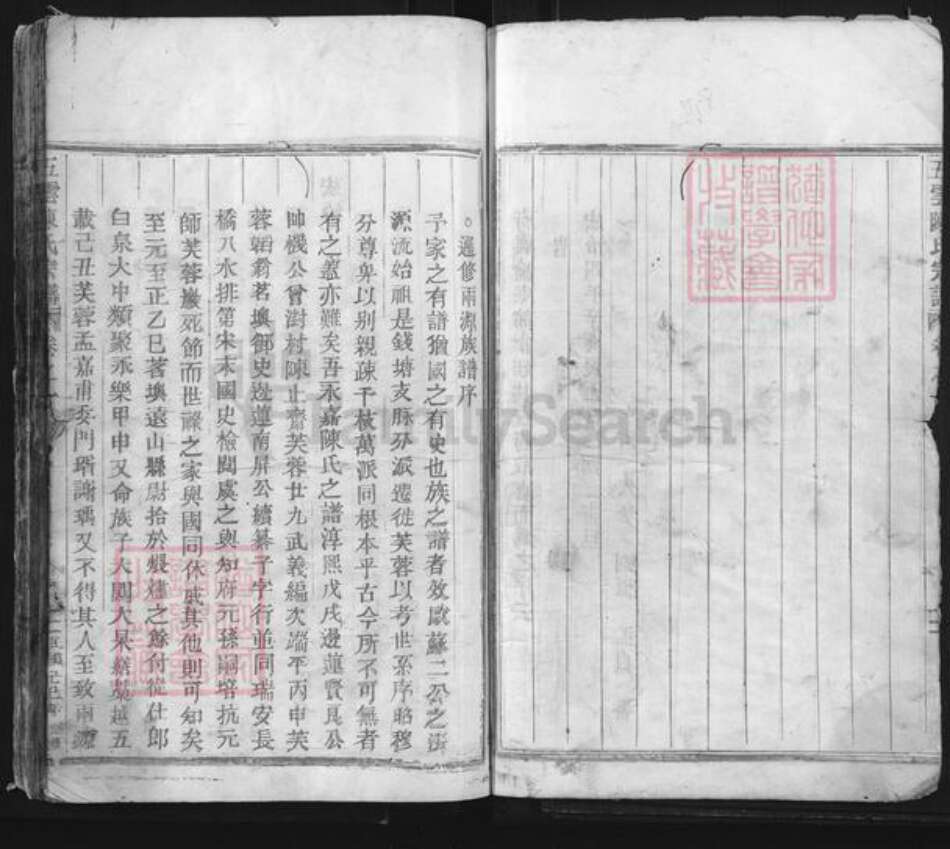 五雲陳氏宗譜
薩仙家
譜學會
收藏
。暹修兩源族譜序
予家之有譜猶國之有史也族之譜者效歐蘇二公之
源流始祖是錢塘支脉分派遷徙芙蓉以考世系序昭穆
分尊卑以别親疎千枝萬派同根本乎古今所不可無者
有之蓋亦難矣吾永嘉陳氏之譜淳熙戊戌邊蓮賢良公
帥機公曾澍村陳止齋芙蓉廿九武義編次端平丙申芙
蓉 翁茗墺御史邊道南屏公續纂子字行並同瑞安長
橋八水排第宋末國史檢閱虞之與知府元孫嗣培抗元
師芙蓉巖死節而世祿之家與國同休戚其他則可知矣
至元至正乙巳茗墺遠山縣尉拾於煨燼之餘付從仕郎
白泉大中類聚永樂甲申又命族子大圜大杲繕 越五
載己丑芙蓉孟嘉甫委門壻謝瑀又不得其人至致兩源
五雲陳氏宗譜
FamilySearch